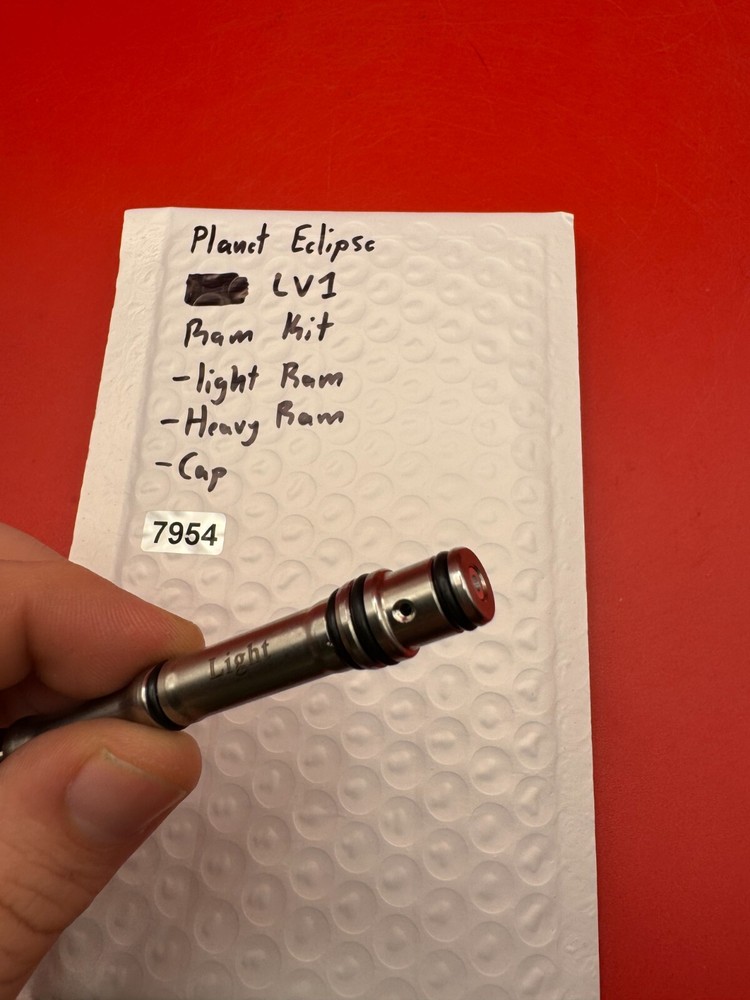 Planet Eclipse
LV1
Ram Kit
-light Ram
-Heavy Ram
-Cap
7954
Light